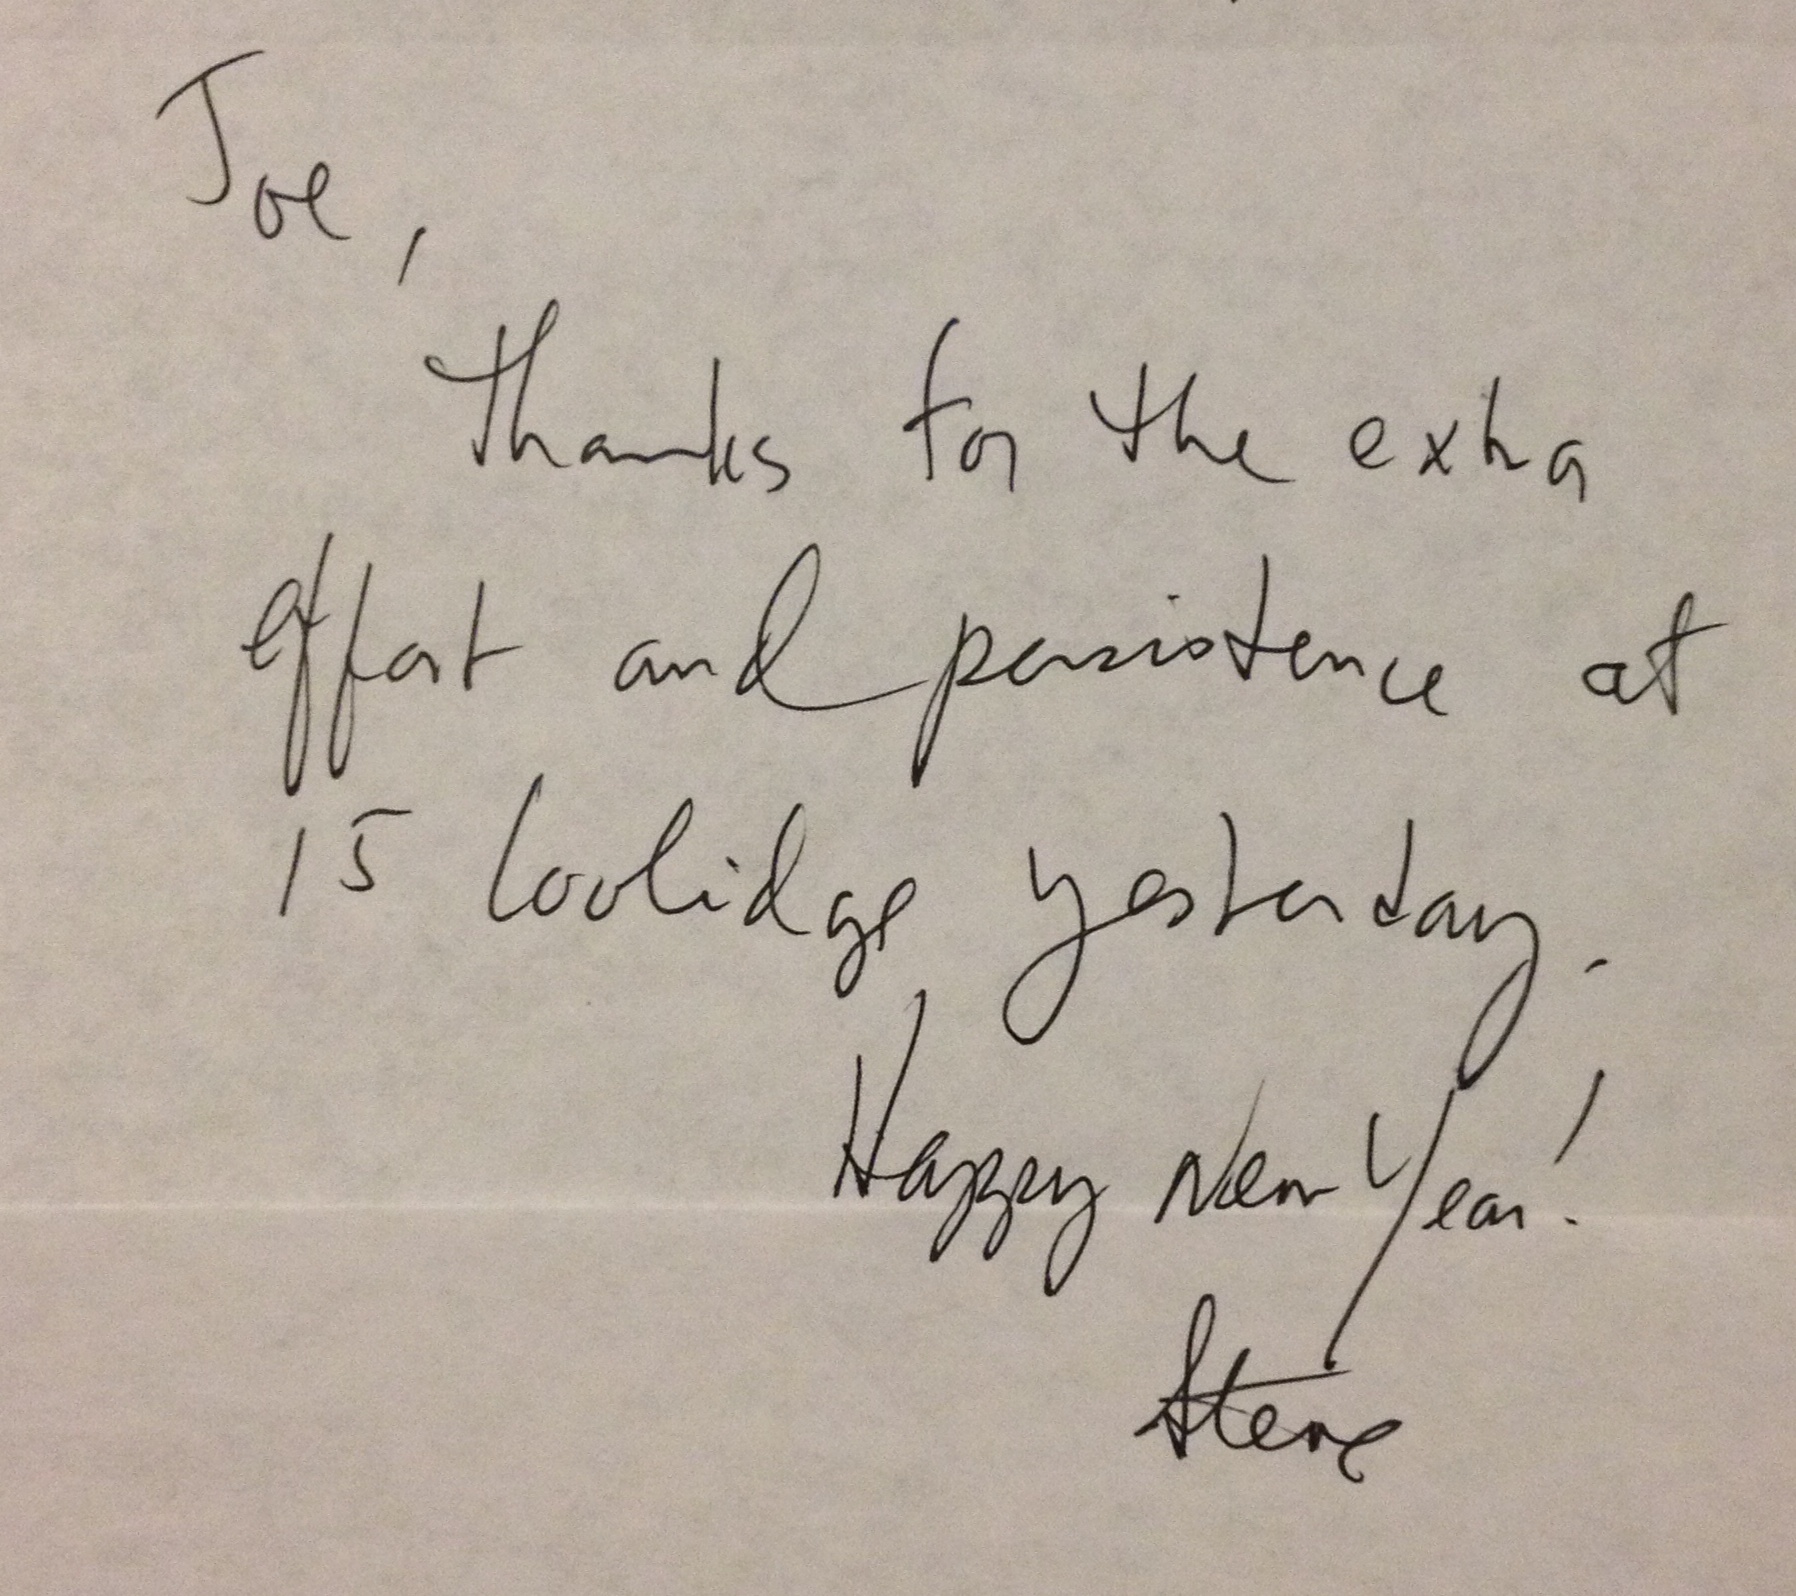 Joe,
Thanks for the extra
effort and persistence at
15 Coolidge yesterday.
Happy New Year!
Steve